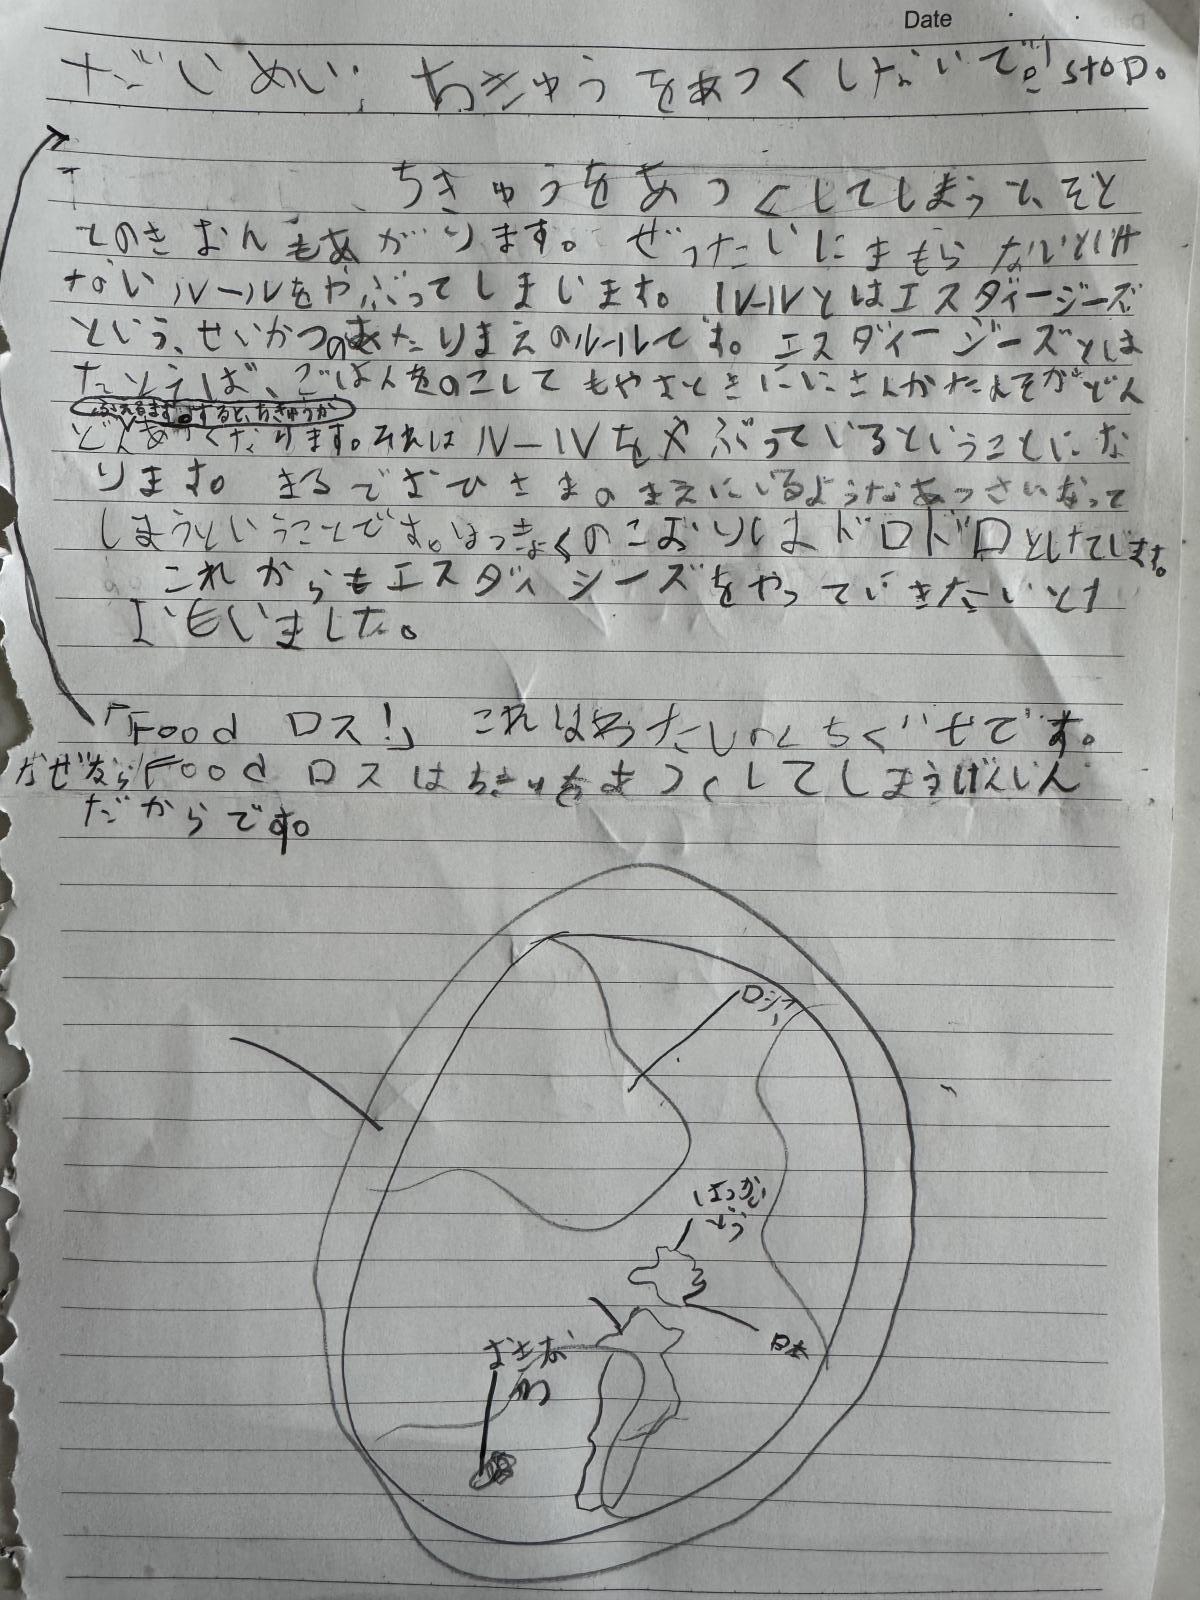 Date
だいめい: ちきゅうをあつくしないで!stop。
ちきゅうをあつくしてしまうと、そと
とのきおんもあがります。ぜったいにまもらないといけ
ないルールをやぶってしまいます。ルールとはエスディージーズ
という、せいかつのあたりまえのルールです。エスディージーズとは
たとえば、ごはんをのこしてもやすときににさんかたんそがどん
ふえるます。すると、ちきゅうが
どんあつくなります。それはルールをやぶっているということにな
ります。まるでおひさまのまえにいるようなあつさになって
しまうということです。ほっきょくのこおりはドロドロとけてします。
これからもエスディジーズをやっていきたいとお
おもいました。
「Food ロス!」これはわたしのくちぐせです。
なぜなら Food ロスはちきゅうをあつくしてしまうげんいん
だからです。
ロシア
ほっかい
どう
日本
おきな
わ